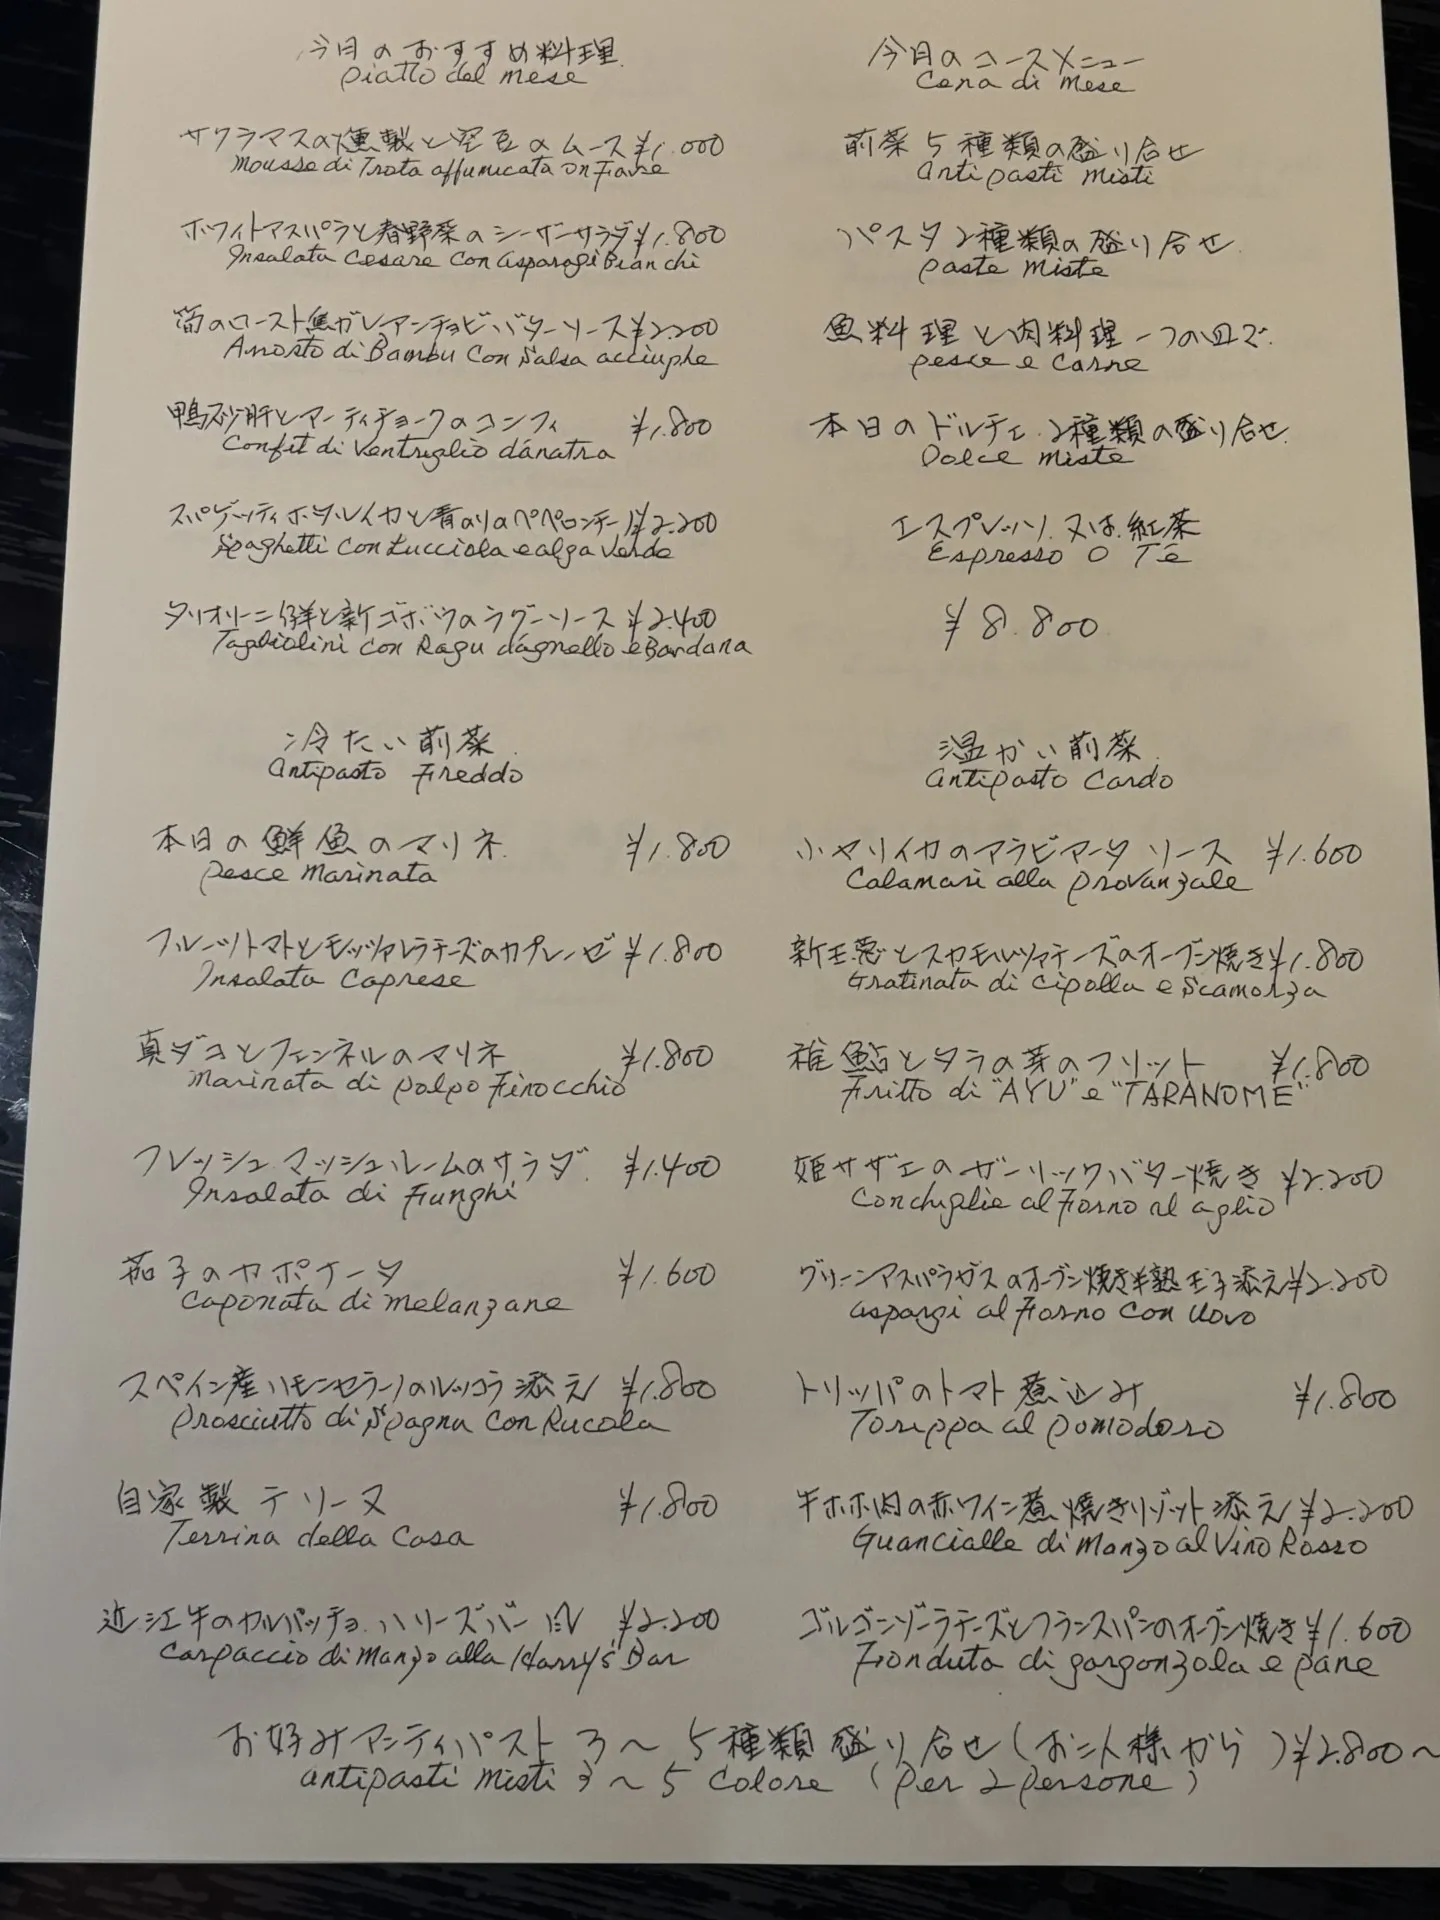 今月のおすすめ料理
piatto del mese
サクラマスの燻製と空豆のムース ¥1.000
Mousse di Trota affumicata on Fave
ホワイトアスパラと春野菜のシーザーサラダ ¥1.800
Insalata Cesare con asparagi Bianchi
筍のロースト焦ガシアンチョビバターソース ¥2.200
Arrosto di Bambu con Salsa acciughe
鴨砂肝とアーティチョークのコンフィ ¥1.800
Confit di Ventriglio d'anatra
スパゲッティホタルイカと青のりのペペロンチーノ ¥2.200
Spaghetti con Lucciola e alga Verde
タリオリーニ仔羊と新ゴボウのラグーソース ¥2.400
Tagliolini con Ragu d'agnello e Bardana
今月のコースメニュー
Cena di Mese
前菜5種類の盛り合せ
Antipasti Misti
パスタ2種類の盛り合せ
paste Miste
魚料理と肉料理一つの皿で
pesce e carne
本日のドルチェ 2種類の盛り合せ
Dolce miste
エスプレッソ又は紅茶
Espresso O Tè
¥8.800
冷たい前菜
Antipasto Freddo
本日の鮮魚のマリネ ¥1.800
Pesce Marinata
フルーツトマトとモッツァレラチーズのカプレーゼ ¥1.800
Insalata Caprese
真ダコとフェンネルのマリネ ¥1.800
Marinata di polpo Finocchio
フレッシュマッシュルームのサラダ ¥1.400
Insalata di Funghi
茄子のカポナータ ¥1.600
Caponata di melanzane
スペイン産ハモンセラーノのルッコラ添え ¥1.800
Prosciutto di Spagna con Rucola
自家製テリーヌ ¥1.800
Terrina della Casa
近江牛のカルパッチョ ハリーズバー風 ¥2.200
Carpaccio di Manzo alla Harry's Bar
温かい前菜
Antipasto Cardo
小ヤリイカのアラビアータソース ¥1.600
Calamari alla provanzale
新玉葱とスカモルツァチーズのオーブン焼き ¥1.800
Gratinata di cipolla e Scamorza
稚鮎とタラの芽のフリット ¥1.800
Fritto di "AYU" e "TARANOME"
姫サザエのガーリックバター焼き ¥2.200
Conchiglie al Forno al aglio
グリーンアスパラガスのオーブン焼き半熟玉子添え ¥2.200
aspargi al Forno con Uovo
トリッパのトマト煮込み ¥1.800
Torippa al pomodoro
牛ホホ肉の赤ワイン煮焼きリゾット添え ¥2.200
Guancialle di Manzo al Vino Rosso
ゴルゴンゾーラチーズとフランスパンのオーブン焼き ¥1.600
Fonduta di gorgonzola e pane
お好みアンティパスト3〜5種類盛り合せ(お二人様から)¥2.800〜
antipasti misti 3〜5 colore (per 2 persone)